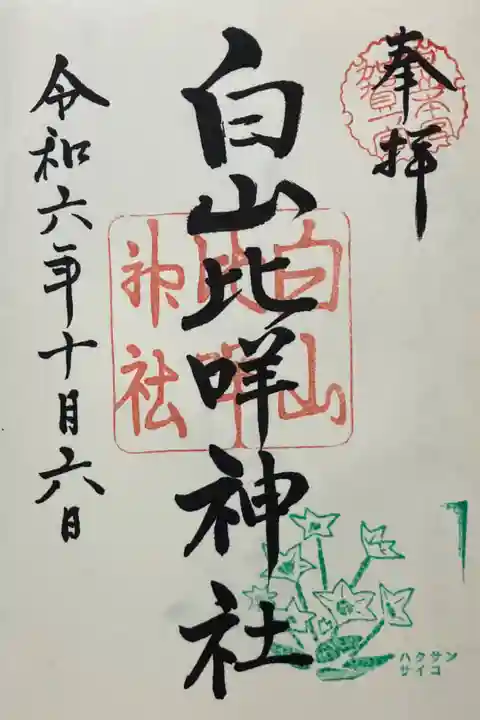 奉拝
白山比咩神社
白山比咩神社
令和六年十月六日
ハクサン
サイコ